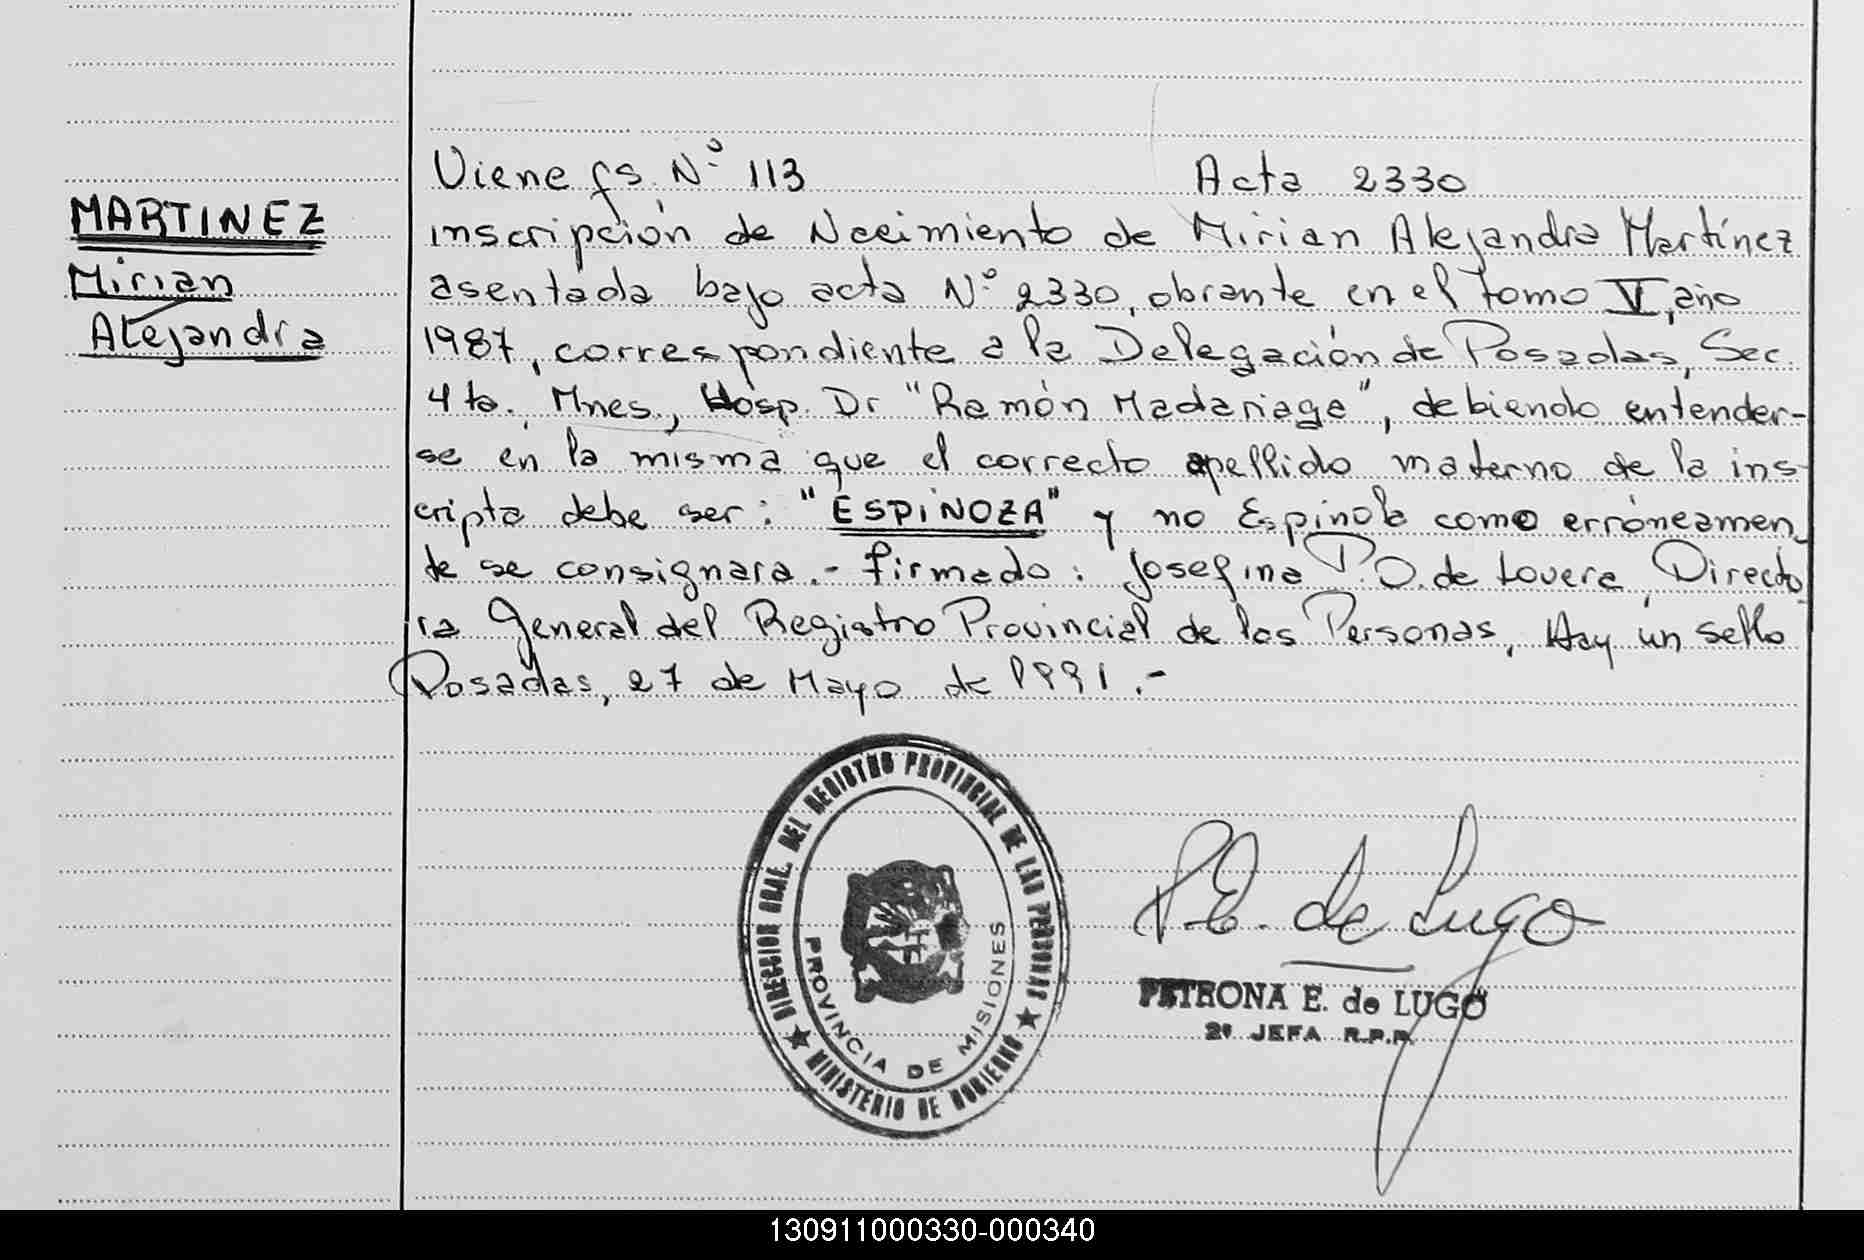 Viene fs. Nº 113 Acta 2330
MARTINEZ
Mirian
Alejandra
inscripción de Nacimiento de Mirian Alejandra Martínez
asentada bajo acta Nº 2330, obrante en el tomo V, año
1987, correspondiente a la Delegación de Posadas, Sec.
4ta. Mnes., Hosp. Dr "Ramón Madariaga", debiendo entender-
se en la misma que el correcto apellido materno de la ins-
cripta debe ser: "ESPINOZA" y no Espinola como erróneamen
te se consignara.- firmado: Josefina P.O. de Lovera, Directo
ra General del Registro Provincial de las Personas, Hay un sello
Posadas, 27 de Mayo de 1991.-
DIRECCION GRAL. DEL REGISTRO PROVINCIAL DE LAS PERSONAS
PROVINCIA DE MISIONES
★ MINISTERIO DE GOBIERNO ★
P.E. de Lugo
PETRONA E. de LUGO
2º JEFA R.P.P.
130911000330-000340